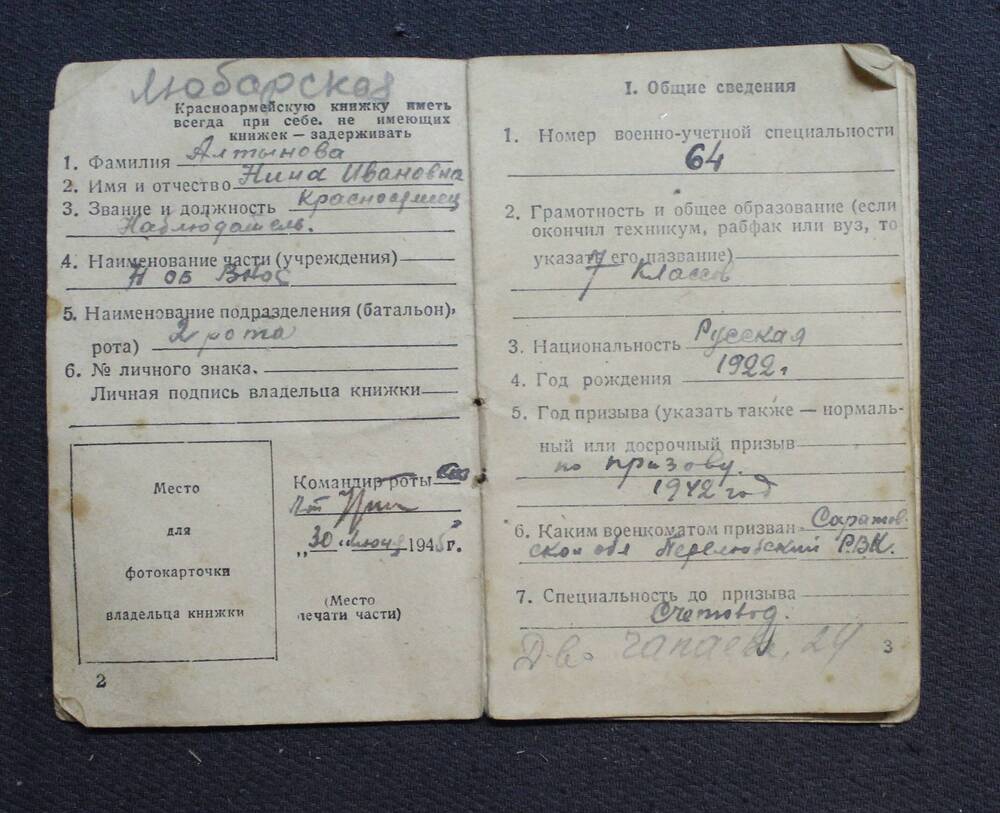 Любарская
Красноармейскую книжку иметь
всегда при себе. не имеющих
книжек — задерживать
1. Фамилия Алтынова
2. Имя и отчество Нина Ивановна
3. Звание и должность Красноармеец
Наблюдатель.
4. Наименование части (учреждения)
4 ОБ ВНОС
5. Наименование подразделения (батальон,
рота) 2 рота
6. № личного знака.
Личная подпись владельца книжки
Место
для
фотокарточки
владельца книжки
Командир роты
„30 июня 1945 г.
(Место
печати части)
2
I. Общие сведения
1. Номер военно-учетной специальности
64
2. Грамотность и общее образование (если
окончил техникум, рабфак или вуз, то
указать его название)
7 классов
3. Национальность Русская
4. Год рождения 1922г
5. Год призыва (указать также — нормаль-
ный или досрочный призыв
по призову.
1942 год
6. Каким военкоматом призван Саратов-
ской обл Перелюбский Р.В.К.
7. Специальность до призыва
Счетовод.
Чапаева 24
3